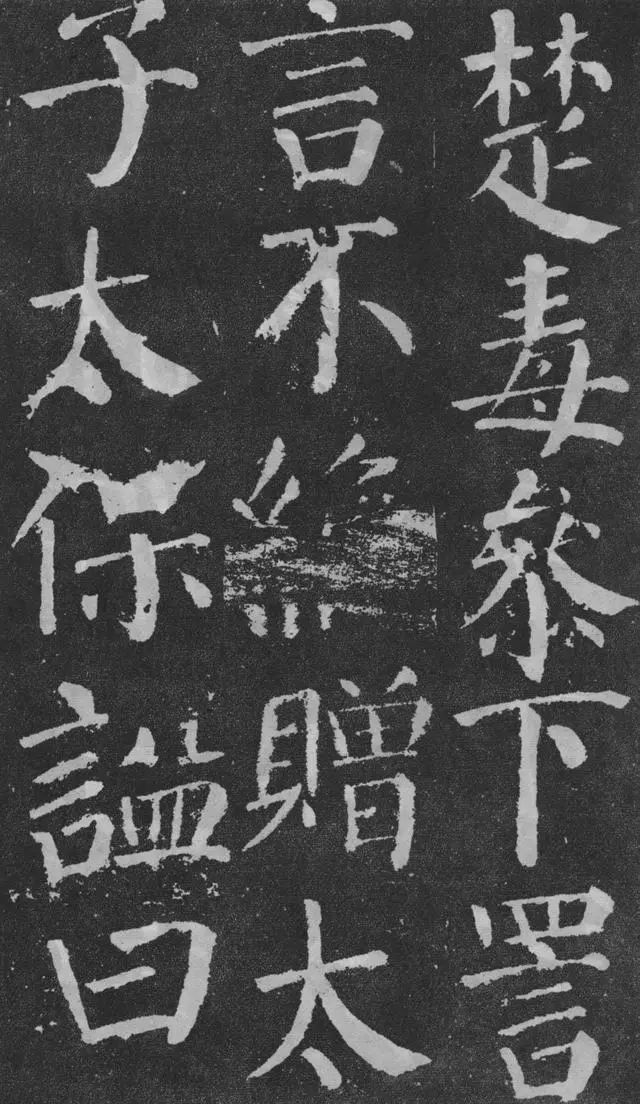 楚毒參下詈
言不絶贈太
子太保謚曰